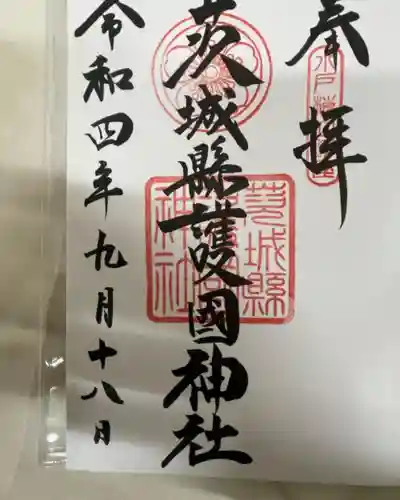 奉拝
茨城縣護國神社
令和四年九月十八日
茨城縣
神社